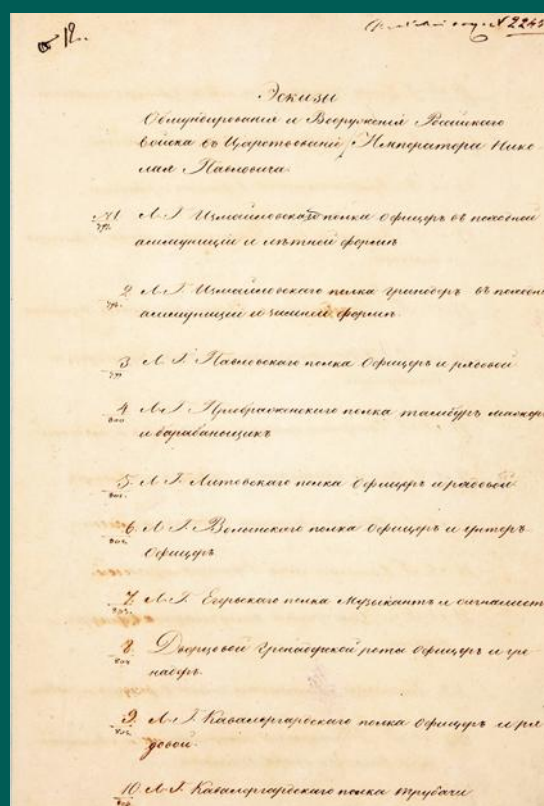 12.
№ 2245
Эскизы
Обмундирования и Вооружения Россійскаго
войска въ Царствованіе Императора Нико-
лая Павловича.
№1 Л. Г. Измайловскаго полка Офицеръ въ походной
аммуниціи и лѣтней формѣ
2. Л. Г. Измайловскаго полка гренадеръ въ походн
аммуниціи и зимней формѣ.
3. Л. Г. Павловскаго полка Офицеръ и рядовой
4 Л. Г. Преображенскаго полка тамбуръ мажоръ
и барабанщикъ
5. Л. Г. Литовскаго полка Офицеръ и рядовой.
6. Л. Г. Волынскаго полка Офицеръ и унтеръ
Офицеръ
7. Л. Г. Егерьскаго полка Музыкантъ и сигналистъ
8. Дворцовой Гренадерской рота Офицеръ и гре
надеръ.
9. Л. Г. Кавалергардскаго полка Офицеръ и ря
довой.
10. Л. Г. Кавалергардскаго полка трубачи